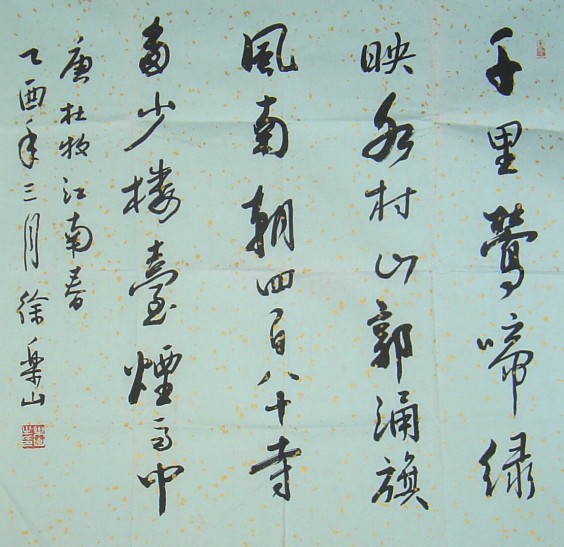 千里鶯啼绿
映水村山郭酒旗
風南朝四百八十寺
多少楼臺煙雨中
唐杜牧江南春
乙酉年三月徐樂山